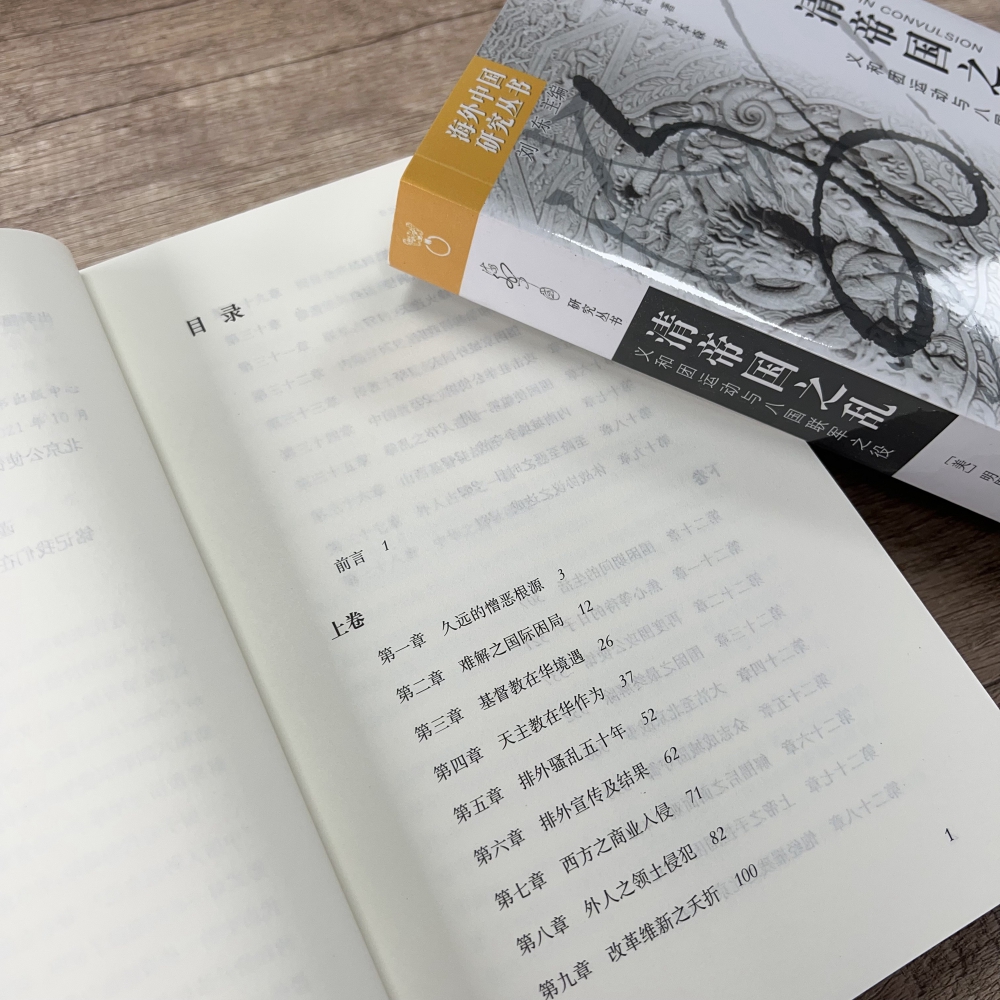 目 录
前言 1
上卷
第一章 久远的憎恶根源 3
第二章 难解之国际困局 12
第三章 基督教在华境遇 26
第四章 天主教在华作为 37
第五章 排外骚乱五十年 52
第六章 排外宣传及结果 62
第七章 西方之商业入侵 71
第八章 外人之领土侵犯 82
第九章 改革维新之夭折 100
1
海外中国
研究丛书
刘 东 主编
IN CONVULSION
清帝国之
义和团运动与八国
著
刘本森 译
研究丛书
清帝国之乱
义和团运动与八国联军之役
[美] 明